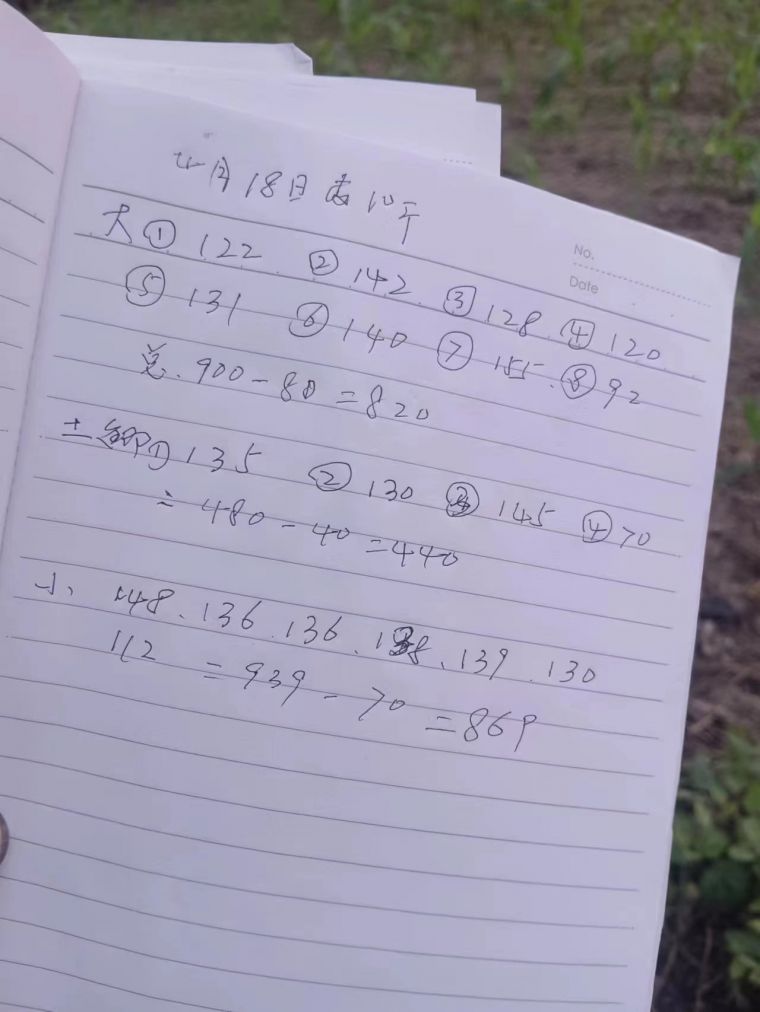 4月18日 10干
No.
大① 122 ② 142 ③ 128 ④ 120
Date
⑤ 131 ⑥ 140 ⑦ 155 ⑧ 92
900-80=820
① 135 ② 130 ③ 145 ④ 70
=480-40=440
小、148、136、136、138、139、130
112 =939-70=869